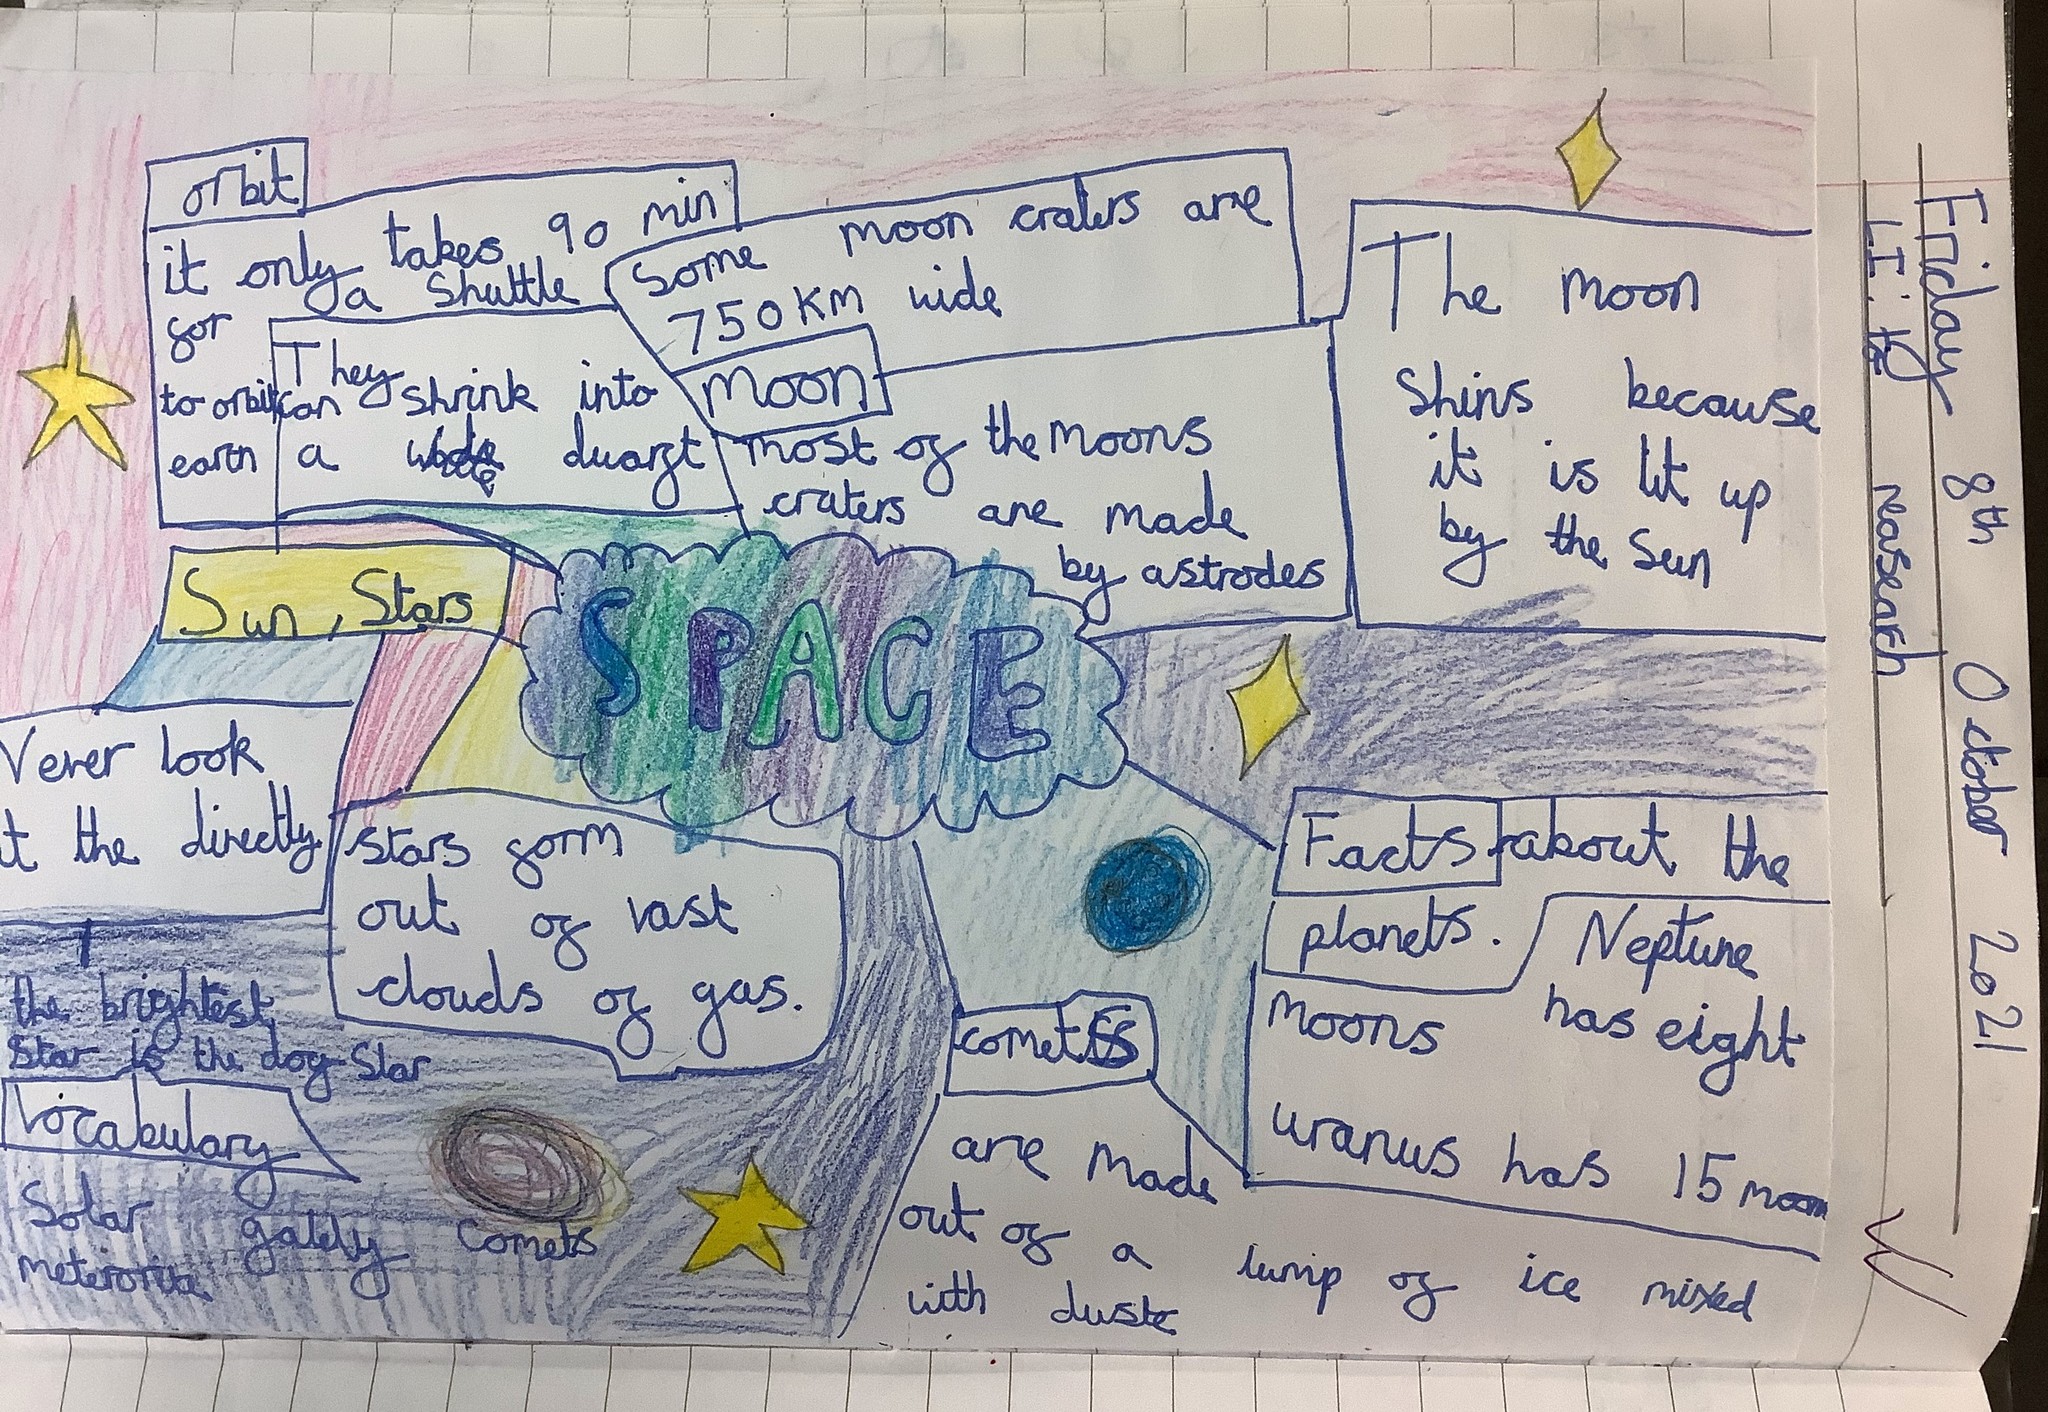 Friday 8th October 2021
LI: to reasearch
orbit
it only takes 90 min
for a Shuttle
to orbit
earth
Some moon craters are
750KM wide
The moon
Shins because
it is lit up
by the Sun
They
can shrink into
a white dwarft
moon
most of the moons
craters are made
by astrodes
Sun, Stars
SPACE
Never look
t the directly
stars form
out of vast
clouds of gas.
the brightest
Star is the dog Star
Facts about the
planets.
Neptune
has eight
moons
uranus has 15 moon
comets
are made
out of a lump of ice mixed
with duste
Vocabulary
Solar comets